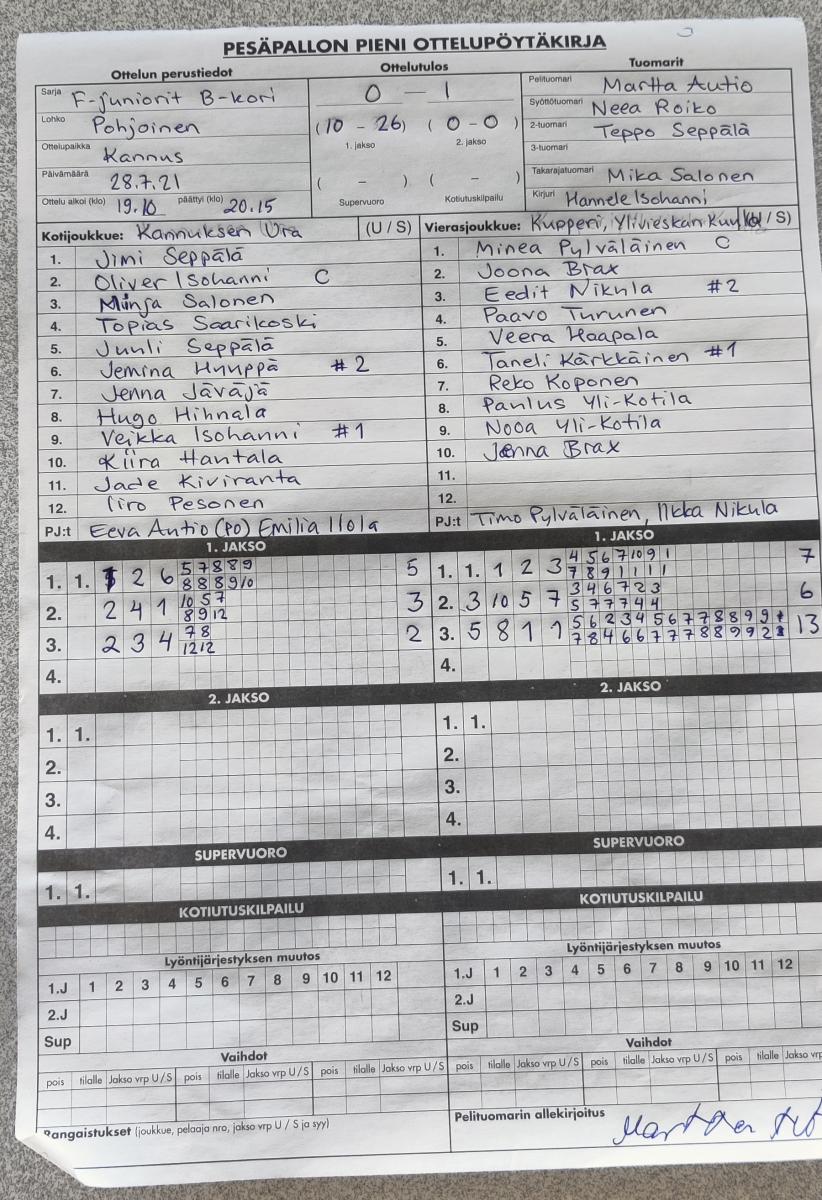 PESÄPALLON PIENI OTTELUPÖYTÄKIRJA
Ottelun perustiedot Ottelutulos Tuomarit
Sarja F-juniorit B-kori
Lohko Pohjoinen
Ottelupaikka Kannus
Päivämäärä 28.7.21
Ottelu alkoi (klo) 19.10 päättyi (klo) 20.15
0 – 1
(10 – 26) (0 – 0)
1. jakso 2. jakso
( – ) ( – )
Supervuoro Kotiutuskilpailu
Pelituomari Martta Autio
Syöttötuomari Neea Roiko
2-tuomari Teppo Seppälä
3-tuomari
Takarajatuomari Mika Salonen
Kirjuri Hannele Isohanni
Kotijoukkue: Kannuksen Ura (U / S)
1. Jimi Seppälä
2. Oliver Isohanni C
3. Minja Salonen
4. Topias Saarikoski
5. Juuli Seppälä
6. Jemina Huuppä #2
7. Jenna Jäväjä
8. Hugo Hihnala
9. Veikka Isohanni #1
10. Kiira Hantala
11. Jade Kiviranta
12. Iiro Pesonen
PJ:t Eeva Autio (PO) Emilia Ilola
Vierasjoukkue: Kupperi, Ylivieskan / S)
1. Minea Pylväläinen C
2. Joona Brax
3. Eedit Nikula #2
4. Paavo Turunen
5. Veera Haapala
6. Taneli Kärkkäinen #1
7. Reko Koponen
8. Paulus Yli-Kotila
9. Nooa Yli-Kotila
10. Jenna Brax
11.
12.
PJ:t Timo Pylväläinen, Ilkka Nikula
1. JAKSO
1. 1. 1 2 6 5 7 8 8 9 5
8 8 8 9 10
2. 2 4 1 10 5 7 3
8 9 12
3. 2 3 4 7 8 2
12 12
4.
1. JAKSO
1. 1. 1 2 3 4 5 6 7 10 9 1 7
7 8 9 1 1 1 1
2. 3 10 5 7 3 4 6 7 2 3 6
5 7 7 7 4 4
3. 5 8 1 1 5 6 2 3 4 5 6 7 7 8 8 9 9 13
7 8 4 6 6 7 7 7 8 8 9 9 2
4.
2. JAKSO
1. 1.
2.
3.
4.
2. JAKSO
1. 1.
2.
3.
4.
SUPERVUORO
1. 1.
SUPERVUORO
1. 1.
KOTIUTUSKILPAILU
KOTIUTUSKILPAILU
Lyöntijärjestyksen muutos
1.J 1 2 3 4 5 6 7 8 9 10 11 12
2.J
Sup
Lyöntijärjestyksen muutos
1.J 1 2 3 4 5 6 7 8 9 10 11 12
2.J
Sup
Vaihdot
pois tilalle Jakso vrp U/S pois tilalle Jakso vrp U/S pois tilalle Jakso vrp U/S
Vaihdot
pois tilalle Jakso vrp U/S pois tilalle Jakso vrp U/S pois tilalle Jakso vrp
Rangaistukset (joukkue, pelaaja nro, jakso vrp U / S ja syy)
Pelituomarin allekirjoitus